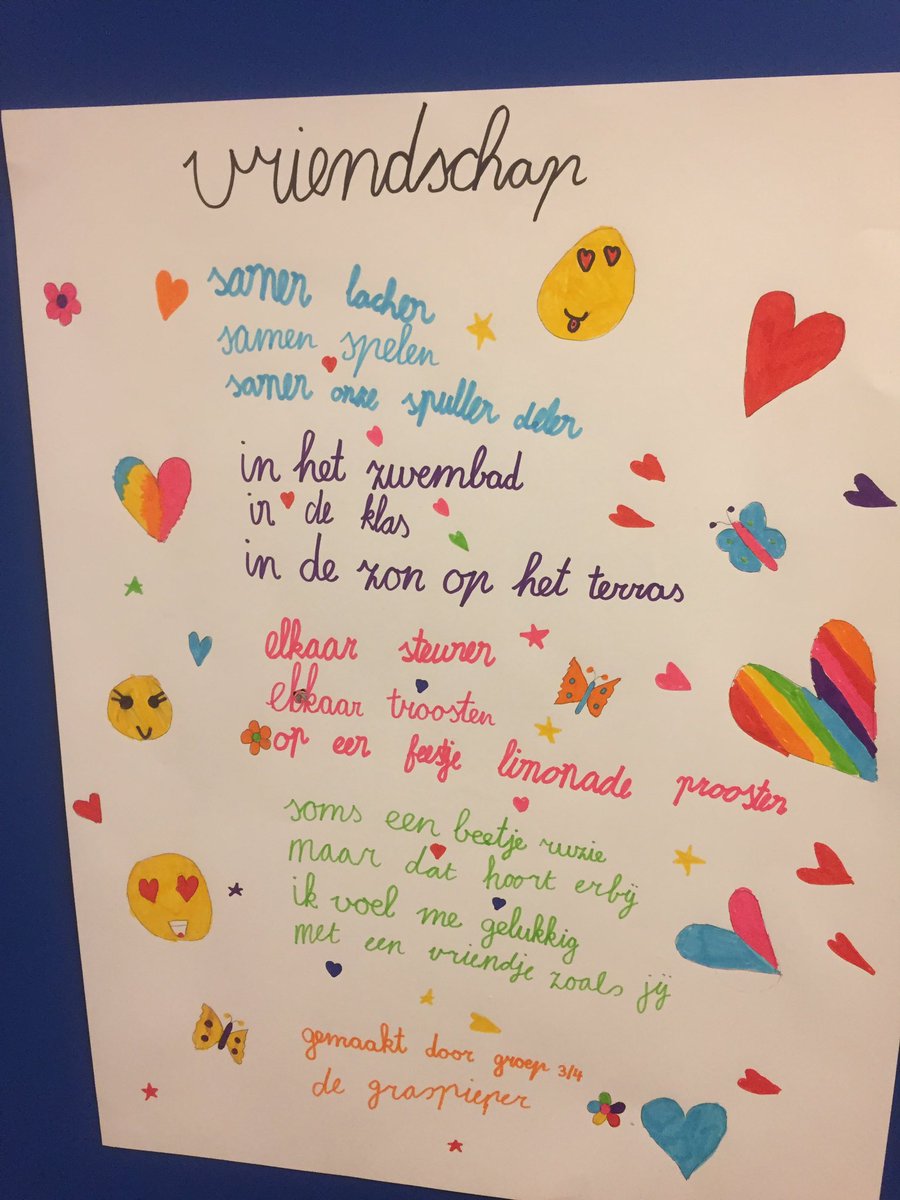 vriendschap
samen lachen
samen spelen
samen onze spullen delen
in het zwembad
in de klas
in de zon op het terras
elkaar steunen
elkaar troosten
op een feestje limonade proosten
soms een beetje ruzie
maar dat hoort erbij
ik voel me gelukkig
met een vriendje zoals jij
gemaakt door groep 3/4
de graspieper